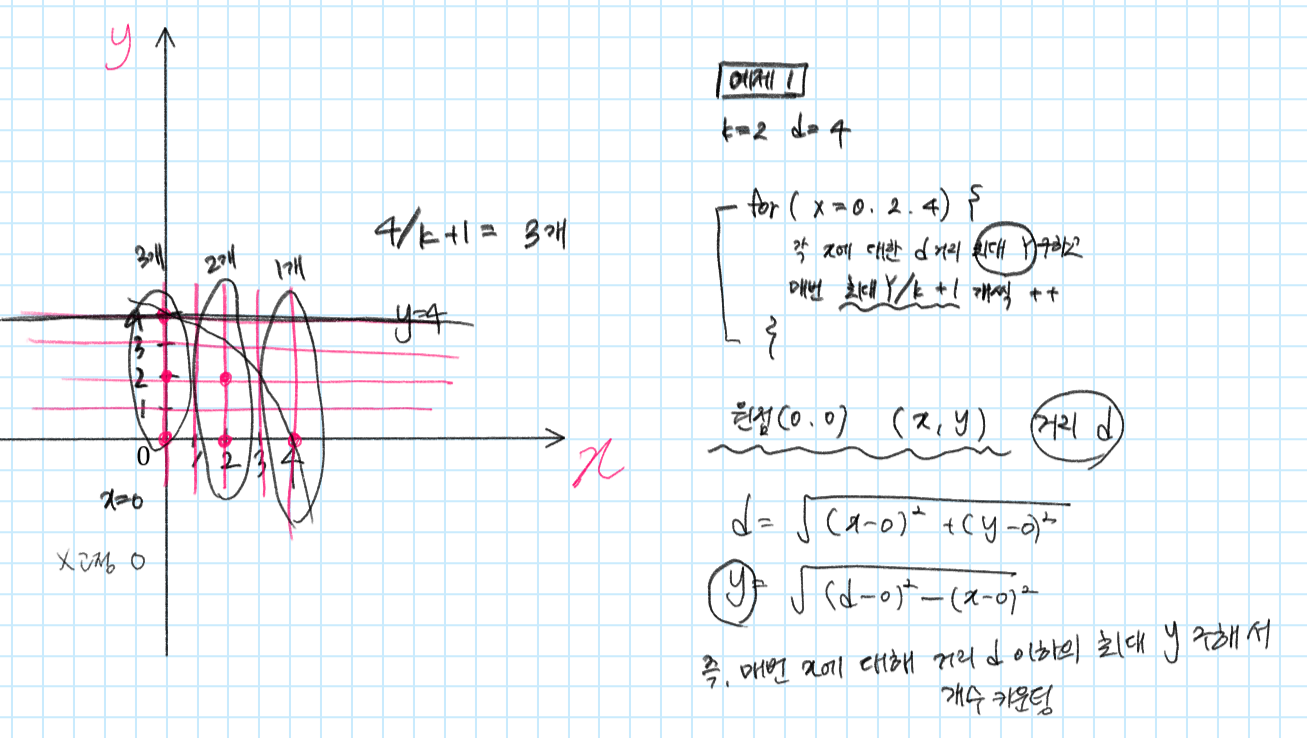 y
4/k+1 = 3개
3개 2개 1개
y=4
4
3
2
1
0 1 2 3 4
x
x=0
x고정 0
예제 1
k=2 d=4
for ( x=0. 2. 4) {
각 x에 대한 d거리 최대 Y 구하고
매번 최대 Y/k +1 개씩 ++
}
원점(0.0) (x, y) 거리 d
d= √(x-0)² +(y-0)²
y= √(d-0)²-(x-0)²
즉, 매번 x에 대해 거리 d 이하의 최대 y 구해서
개수 카운팅